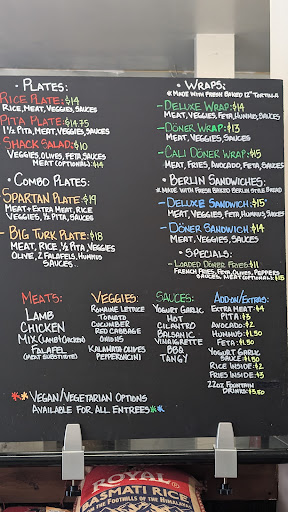 • Plates:
Rice Plate: $14
Rice, Meat, Veggies, Sauces
Pita Plate: $14.75
1 ½ Pita, Meat, Veggies, Sauces
Shack Salad: $10
Veggies, Olives, Feta, Sauces
Meat (optional): $14
• Combo Plates:
Spartan Plate: $19
Meat + Extra Meat, Rice
Veggies, ½ Pita, Sauces
- Big Turk Plate: $18
Meat, Rice, ½ Pita, Veggies
Olive, 2 Falafels, Hummus
Sauces
• Wraps:
* Made with Fresh Baked 12" Tortilla
- Deluxe Wrap: $14
Meat, Veggies, Feta, Hummus, Sauces
- Döner Wrap: $13
Meat, Veggies, Sauces
- Cali Döner Wrap: $15
Meat, Fries, Avocado, Feta, Sauces
• Berlin Sandwiches:
* Made with Fresh Baked Berlin Style Bread
- Deluxe Sandwich: $15
Meat, Veggies, Feta, Hummus, Sauces
- Döner Sandwich: $14
Meat, Veggies, Sauces
• Specials:
- Loaded Döner Fries: $11
French Fries, Feta, Olives, Peppers
Sauces, Meat (optional): $15
Meats:
Lamb
Chicken
Mix (Lamb + Chicken)
Falafel
(Meat Substitute)
Veggies:
Romaine Lettuce
Tomato
Cucumber
Red Cabbage
Onions
Kalamata Olives
Pepperoncini
Sauces:
Yogurt Garlic
Hot
Cilantro
Balsamic
Vinaigrette
BBQ
Tangy
Add-on/Extras:
Extra Meat: $4
Pita: $3
Avocado: $2
Hummus: $1.50
Feta: $1.50
Yogurt Garlic
Sauce: $1.50
Rice Inside: $2
Fries Inside: $3
22oz Fountain
Drinks: $3.50
* Vegan/Vegetarian Options
Available For All Entrees **
ROYAL
BASMATI RICE
From the Foothills of the Himalayas